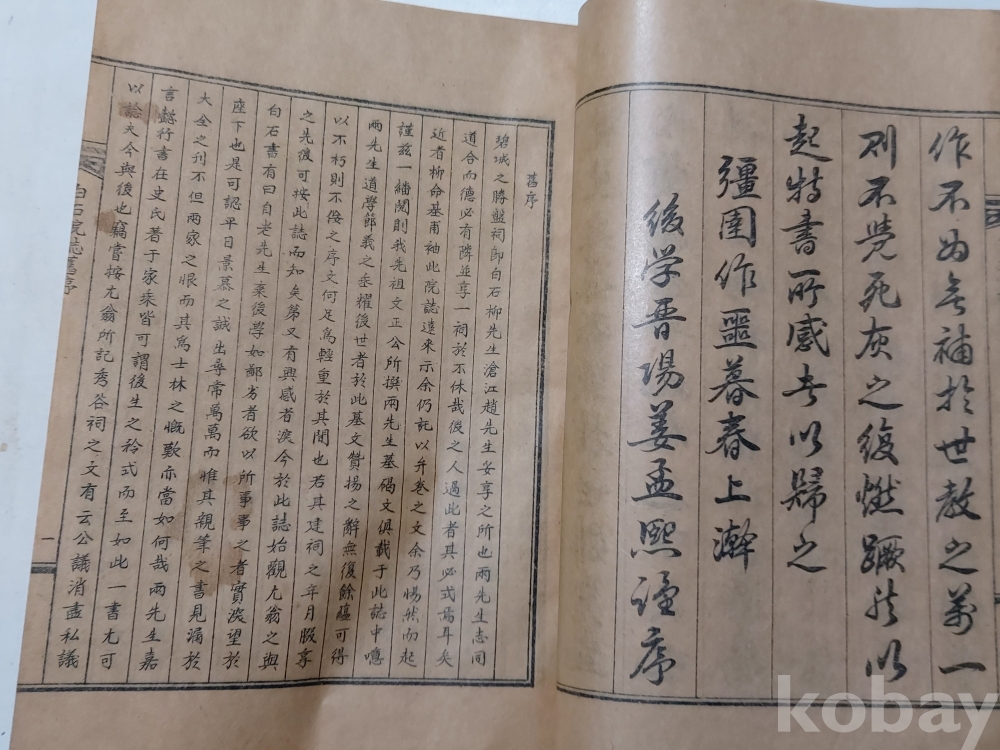 作不為無補於世教之萬一
則不覺死灰之復燃蹶然以
起特書所感者以歸之
彊圉作噩暮春上澣
後学晋陽姜孟熙謹序
舊序
碧城之勝盤祠卽白石柳先生滄江趙先生妥享之所也兩先生志同
道合而德必有隣並享一祠於不休哉後之人過此者其必式焉耳矣
近者柳命基甫袖此院誌遠來示余仍託以弁卷之文余乃惕然而起
謹玆一繙閱則我先祖文正公所撰兩先生墓碣文俱載于此誌中噫
兩先生道學節義之垂耀後世者於此墓文贊揚之辭無復餘蘊可得
以不朽則不佞之序文何足爲輕重於其間也若其建祠之年月腏享
之先後可按此誌而知矣第又有興感者淚今於此誌始觀尤翁之與
白石書有曰自老先生棄後學如鄙劣者欲以所事事之者實深望於
座下也是可認平日景慕之誠出尋常萬萬而惟其親筆之書見漏於
大全之刊不但兩家之恨而其爲士林之慨歎亦當如何哉兩先生嘉
言懿行書在史氏著于家乘皆可謂後生之矜式而至如此一書尤可
以諗夫今與後也竊嘗按尤翁所記秀谷祠之文有云公議消盡私議
白石院誌舊序
一
kobay